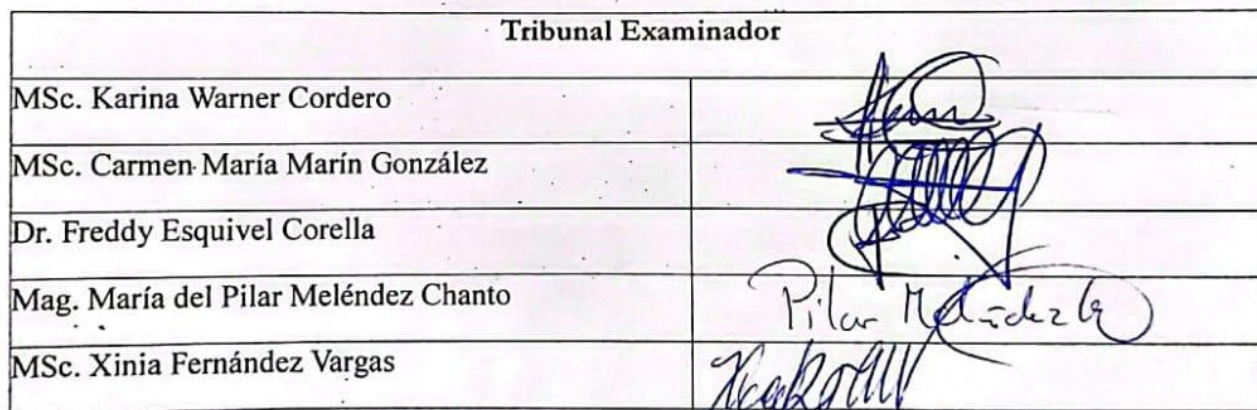 Tribunal Examinador
MSc. Karina Warner Cordero
MSc. Carmen María Marín González
Dr. Freddy Esquivel Corella
Mag. María del Pilar Meléndez Chanto
Pilar Meléndez
MSc. Xinia Fernández Vargas